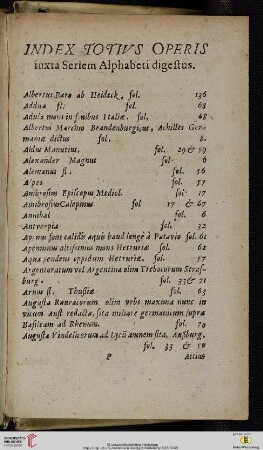 INDEX TOTIVS OPERIS
iuxta Seriem Alphabeti digestus.
Albertus Baro ab Heideck. fol. 136
Addua fl: fol. 68
Adula mons in finibus Italiæ. fol. 48
Albertus Marchio Brandenburgicus, Achilles Ger-
maniæ dictus fol. 8.
Aldus Manutius, fol. 29 & 59
Alexander Magnus fol. 6
Alemanus fl: fol. 56
Alpes fol. 57
Ambrosius Episcopus Mediol. fol. 17
Ambrosius Calepinus fol 17 & 67
Annibal fol. 6
Antverpia fol. 32
Aponus fons calidis aquis haud longè à Patavio fol. 61
Apenninus altissimus mons Hetruriæ fol. 62
Aqua pendens oppidum Hetruriæ. fol. 57
Argentoratum vel Argentina olim Trebocorum Straß-
burg. fol. 33 & 71
Arnus fl: Thusiæ fol. 63
Augusta Rauracorum olim vrbs maxima nunc in
vicum Aust redacta, sita miliare germanicum supra
Basileam ad Rhenum. fol. 70
Augusta Vindelicorum ad Lycū amnem sita, Außburg.
fol. 33 & 50
P Attius